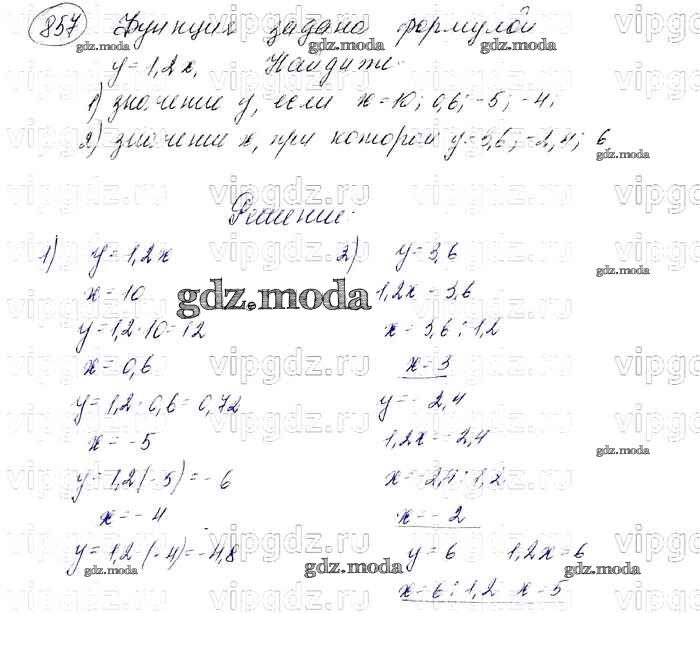 857 Функция задана формулой
y = 1,2x. Найдите
1) значение y, если x = 10; 0,6; -5; -4;
2) значение x, при котором y = 3,6; -2,4; 6
Решение:
1) y = 1,2x
x = 10
y = 1,2 · 10 = 12
x = 0,6
y = 1,2 · 0,6 = 0,72
x = -5
y = 1,2(-5) = -6
x = -4
y = 1,2(-4) = -4,8
2) y = 3,6
1,2x = 3,6
x = 3,6 : 1,2
x = 3
y = -2,4
1,2x = -2,4
x = -2,4 : 1,2
x = -2
y = 6 1,2x = 6
x = 6 : 1,2 x = 5
gdz.moda
vipgdz.ru